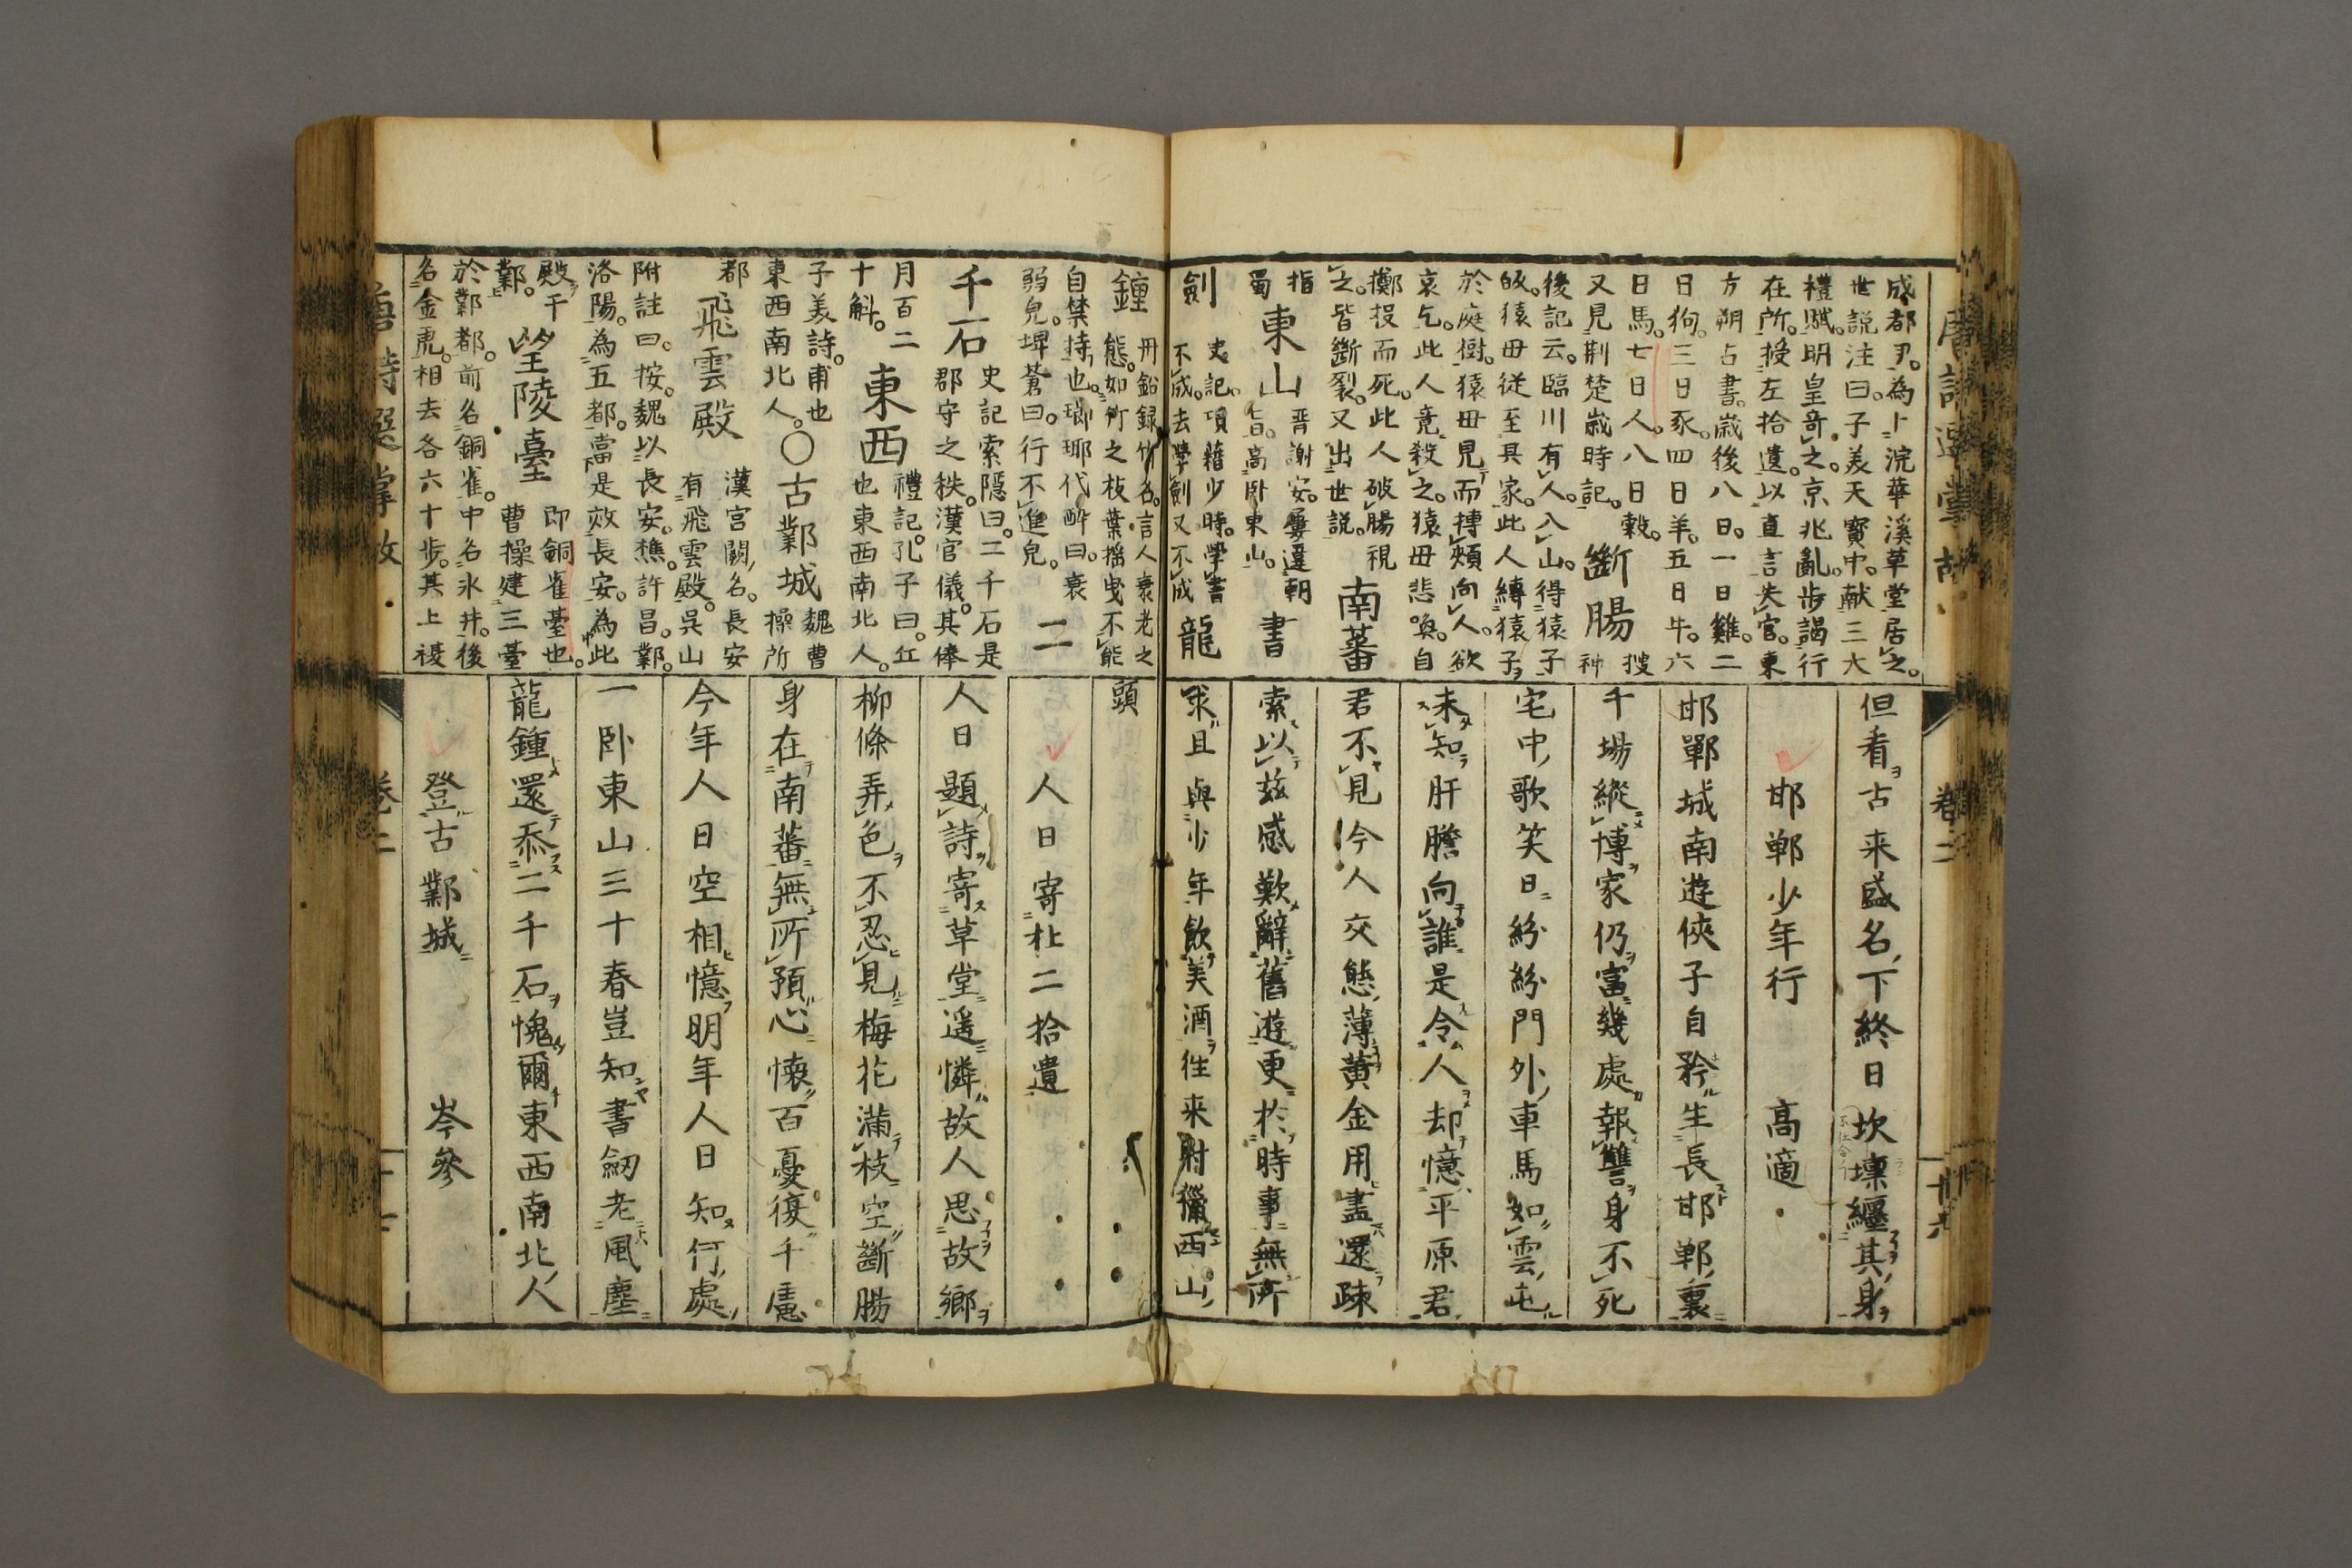 唐詩選掌故
卷二
成都尹。為卜浣華溪草堂居之。
世説注曰。子美天寶中。献三大
禮賦。明皇竒之。京兆亂。歩謁行
在所。授左拾遺。以直言失官。東
方朔占書。歳後八日。一日雞。二
日狗。三日豕。四日羊。五日牛。六
日馬。七日人。八日穀。
又見荆楚歳時記。
斷腸
搜神
後記云。臨川有人。入山。得猿子
皈。猿毋従至其家。此人縛猿子
於庭樹。猿毋見而搏頰向人。欲
哀乞。此人竟殺之。猿毋悲喚。自
擲投而死。此人破腸視
之。皆斷裂。又出世説。
南蕃
指
蜀
東山
晋謝安。屢違朝
旨。高卧東山。
書
劍
史記。項籍少時。學書
不成。去學劍又不成
龍
但看古来盛名下終日坎壈纒其身
邯郸少年行
高適
邯鄲城南遊俠子自矜生長邯郸裏
千場縱博家仍富幾處報讐身不死
宅中歌笑日紛紛門外車馬如雲屯
未知肝膽向誰是令人却憶平原君
君不見今人交態薄黄金用盡還疎
索以兹感歎辭舊遊更於時事無所
求且與少年飲美酒徃来射獵西山
鍾
卅鉛録竹名。言人衰老之
態。如竹之枝葉揺曳不能
自禁持也。瑯琊代酔曰。衰
弱皃。埤蒼曰。行不進皃。
二
千石
史記索隱曰。二千石是
郡守之秩。漢官儀。其俸
月百二
十斛。
東西
禮記。孔子曰。丘
也東西南北人。
子美詩。甫也
東西南北人。
○古鄴城
魏曹
操所
都
飛雲殿
漢宮闕名。長安
有飛雲殿。呉山
附註曰。按。魏以長安。樵。許昌。鄴。
洛陽。為五都。當是效長安。為此
殿于
鄴。
望陵臺
即銅雀臺也。
曹操建三臺
於鄴都。前名銅雀。中名氷井。後
名金虎。相去各六十歩。其上複
頭
人日寄杜二拾遺
人日題詩寄草堂遥憐故人思故郷
柳條弄色不忍見梅花滿枝空斷腸
身在南蕃無所預心懐百憂復千慮
今年人日空相憶明年人日知何處
一卧東山三十春豈知書劒老風塵
龍鍾還忝二千石愧爾東西南北人
登古鄴城
岑參
唐詩選掌故
卷二